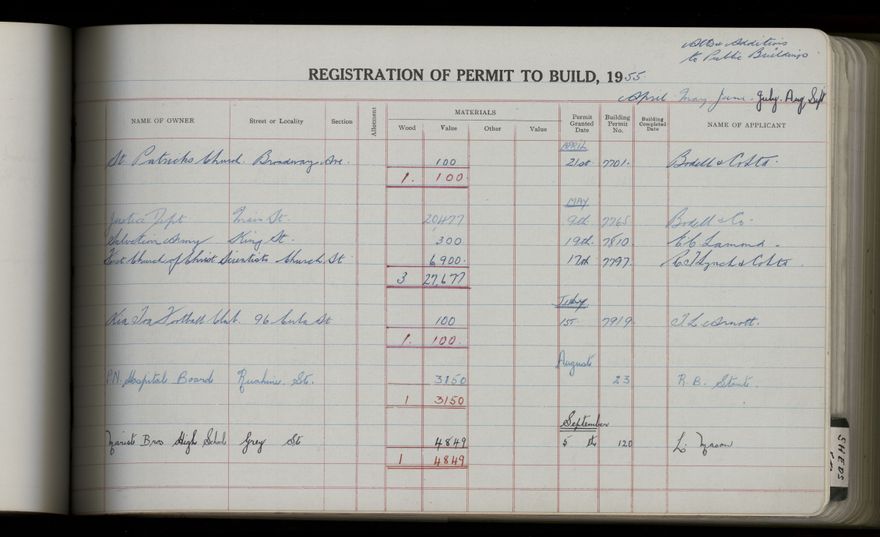 Alts & Additions
to Public Buildings
REGISTRATION OF PERMIT TO BUILD, 1955
April May June. July. Aug. Sept
NAME OF OWNER Street or Locality Section Allotment MATERIALS Wood Value Other Value Permit Granted Date Building Permit No. Building Completed Date NAME OF APPLICANT
APRIL
St. Patricks Church. Broadway Ave. 100 21st 7701. Bodell & Co Ltd.
1. 100.
MAY
Justice Dept Main St. 20477 9th 7765 Bodell & Co.
Salvation Army King St. 300 19th. 7810
First Church of Christ Scientists Church St 6900. 17th 7797. Lynch & Co Ltd
3 27,677
July
Kia Toa Football Club. 96 Cuba St 100 1st. 7919.
1. 100.
Auguste
P.N. Hospital Board Ruahine St. 3150 23 R. B.
1 3150
September
Marist Bros High School Grey St 4849 5 th 120 L. Mason
1 4849
SHEDS